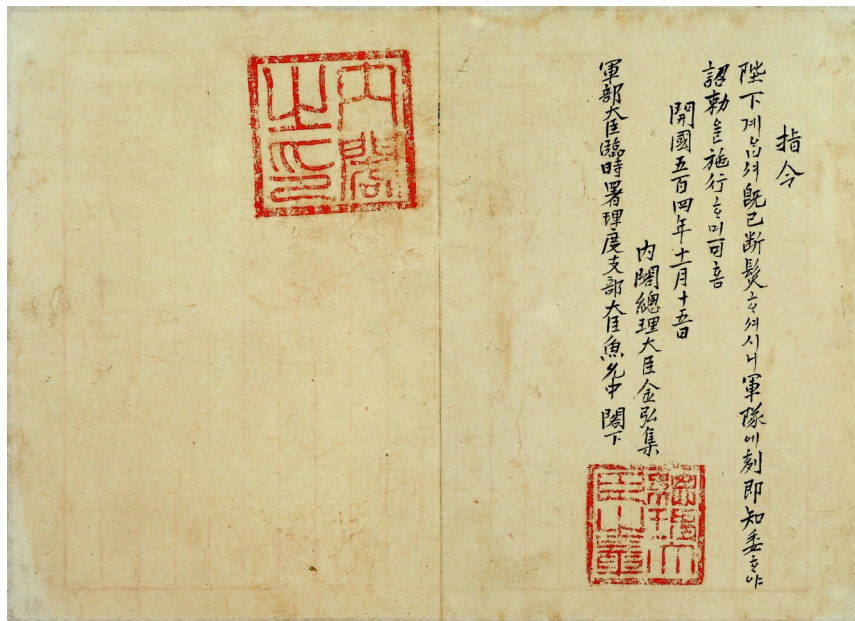 指令
陛下계옵셔旣已断髮ᄒᆞ셔시니軍隊에刻即知委ᄒᆞ야
詔勅을施行ᄒᆞ미可홈
開國五百四年十一月十五日
內閣總理大臣金弘集
軍部大臣臨時署理度支部大臣魚允中 閣下
總理大臣之章
內閣之印